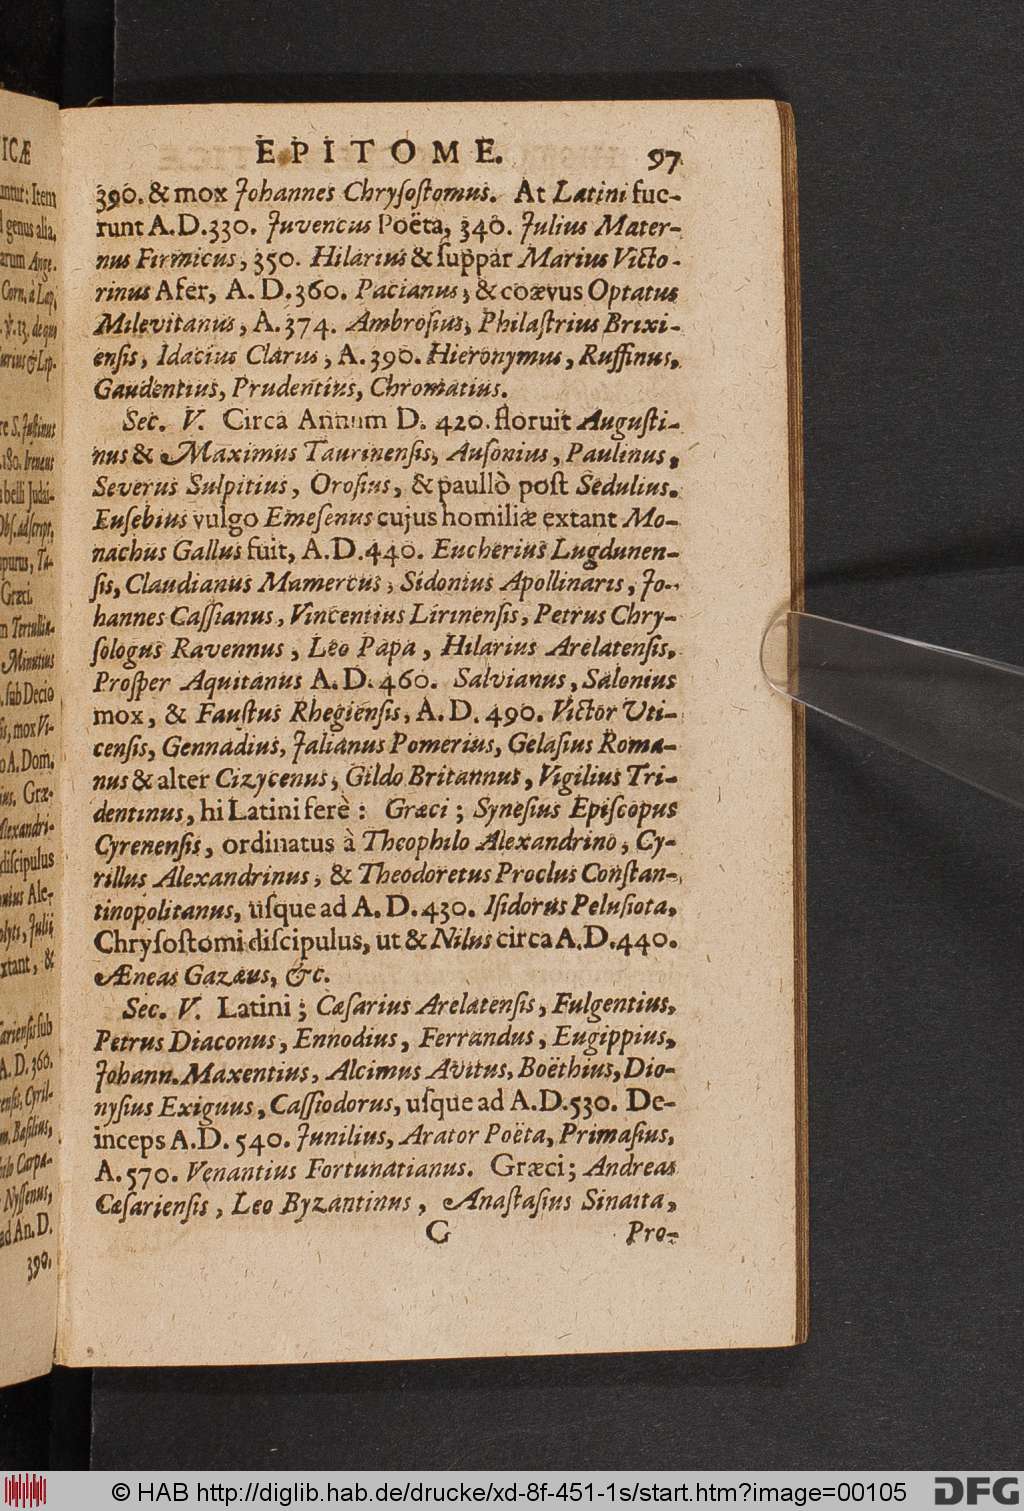 EPITOME. 97
390. & mox Johannes Chrysostomus. At Latini fue-
runt A.D.330. Juvencus Poëta, 340. Julius Mater-
nus Firmicus, 350. Hilarius & suppar Marius Victo-
rinus Afer, A. D.360. Pacianus, & coævus Optatus
Milevitanus, A.374. Ambrosius, Philastrius Brixi-
ensis, Idacius Clarus, A.390. Hieronymus, Ruffinus,
Gaudentius, Prudentius, Chromatius.
Sec. V. Circa Annum D. 420. floruit Augusti-
nus & Maximus Taurinensis, Ausonius, Paulinus,
Severus Sulpitius, Orosius, & paullò post Sedulius.
Eusebius vulgo Emesenus cujus homiliæ extant Mo-
nachus Gallus fuit, A.D.440. Eucherius Lugdunen-
sis, Claudianus Mamercus, Sidonius Apollinaris, Jo-
hannes Cassianus, Vincentius Lirinensis, Petrus Chry-
sologus Ravennus, Leo Papa, Hilarius Arelatensis,
Prosper Aquitanus A.D.460. Salvianus, Salonius
mox, & Faustus Rhegiensis, A.D. 490. Victor Uti-
censis, Gennadius, Jalianus Pomerius, Gelasius Roma-
nus & alter Cizycenus, Gildo Britannus, Vigilius Tri-
dentinus, hi Latini ferè: Græci; Synesius Episcopus
Cyrenensis, ordinatus à Theophilo Alexandrino, Cy-
rillus Alexandrinus, & Theodoretus Proclus Constan-
tinopolitanus, usque ad A.D.430. Isidorus Pelusiota,
Chrysostomi discipulus, ut & Nilus circa A.D.440.
Æneas Gazæus, &c.
Sec. V. Latini; Cæsarius Arelatensis, Fulgentius,
Petrus Diaconus, Ennodius, Ferrandus, Eugippius,
Johann. Maxentius, Alcimus Avitus, Boëthius, Dio-
nysius Exiguus, Cassiodorus, usque ad A.D.530. De-
inceps A.D. 540. Junilius, Arator Poëta, Primasius,
A.570. Venantius Fortunatianus. Græci; Andreas
Cæsariensis, Leo Byzantinus, Anastasius Sinaita,
G Pro-
© HAB http://diglib.hab.de/drucke/xd-8f-451-1s/start.htm?image=00105 DFG